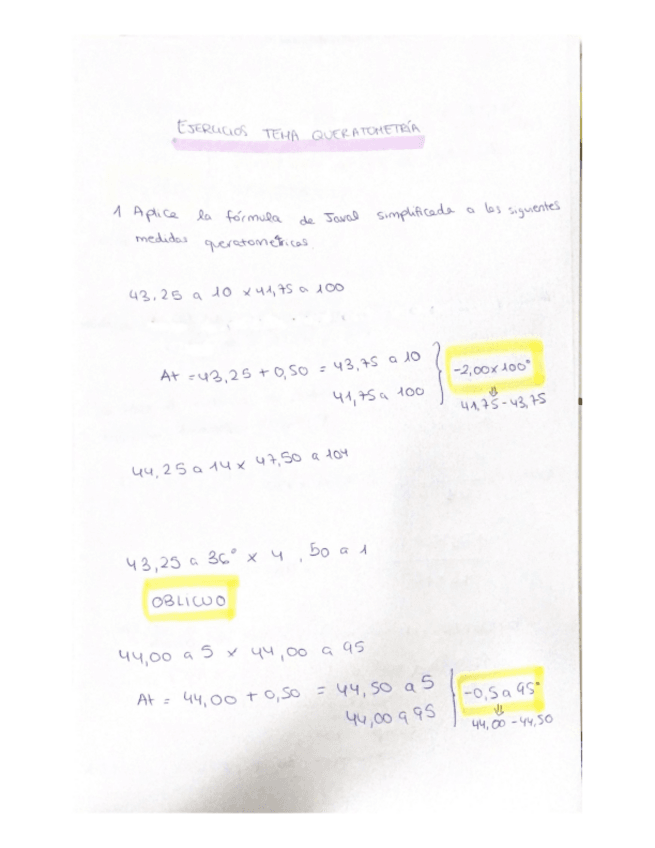 EJERCICIOS TEMA QUERATOMETRÍA
1 Aplice la fórmula de Javal simplificada a las siguientes
medidas queratométricas.
43,25 a 10 x 41,75 a 100
At = 43,25 + 0,50 = 43,75 a 10
41,75 a 100
-2,00x100°
⇓
41,75-43,75
44,25 a 14 x 47,50 a 104
43,25 a 36° x 4 , 50 a 1
OBLICUO
44,00 a 5 x 44,00 a 95
At = 44,00 + 0,50 = 44,50 a 5
44,00 a 95
-0,5 a 95°
⇓
44,00-44,50